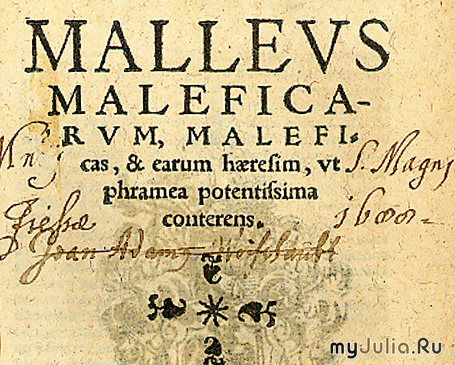 MALLEVS
MALEFICA-
RVM, MALEFI-
cas, & earum hæresim, vt
phramea potentissima
conterens.
S. Magni
1600-
Joan Adam
myJulia.Ru